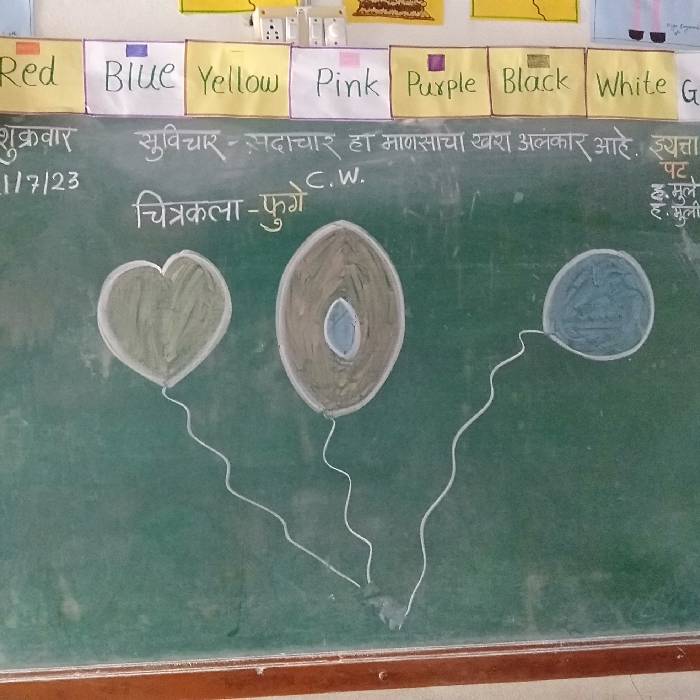 Red Blue Yellow Pink Purple Black White G
शुक्रवार सुविचार - सदाचार हा माणसाचा खरा अलंकार आहे. इयत्ता
1/7/23 C.W. पट
चित्रकला - फुगे ह. मुले
ह. मुली